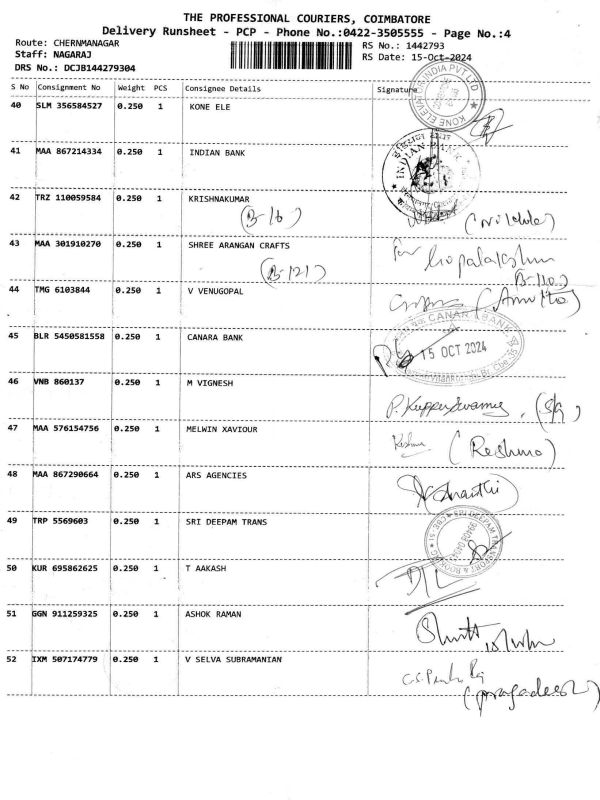 THE PROFESSIONAL COURIERS, COIMBATORE
Delivery Runsheet - PCP - Phone No.:0422-3505555 - Page No.:4
Route: CHERNMANAGAR RS No.: 1442793
Staff: NAGARAJ RS Date: 15-Oct-2024
DRS No.: DCJB144279304
S No Consignment No Weight PCS Consignee Details Signature
40 SLM 356584527 0.250 1 KONE ELE
KONE ELEVATOR INDIA PVT LTD
41 MAA 867214334 0.250 1 INDIAN BANK
INDIAN BANK
42 TRZ 110059584 0.250 1 KRISHNAKUMAR
(B-16)
43 MAA 301910270 0.250 1 SHREE ARANGAN CRAFTS
For Gopalakrishnan
(B-121) B-110
44 TMG 6103844 0.250 1 V VENUGOPAL
45 BLR 5450581558 0.250 1 CANARA BANK
CANARA BANK
15 OCT 2024
46 VNB 860137 0.250 1 M VIGNESH
P. Kuppuswamy
47 MAA 576154756 0.250 1 MELWIN XAVIOUR
Reshma (Reshma)
48 MAA 867290664 0.250 1 ARS AGENCIES
49 TRP 5569603 0.250 1 SRI DEEPAM TRANS
SRI DEEPAM TRANSPORT & BOOKING
50 KUR 695862625 0.250 1 T AAKASH
51 GGN 911259325 0.250 1 ASHOK RAMAN
52 IXM 507174779 0.250 1 V SELVA SUBRAMANIAN
(pragadeesh)